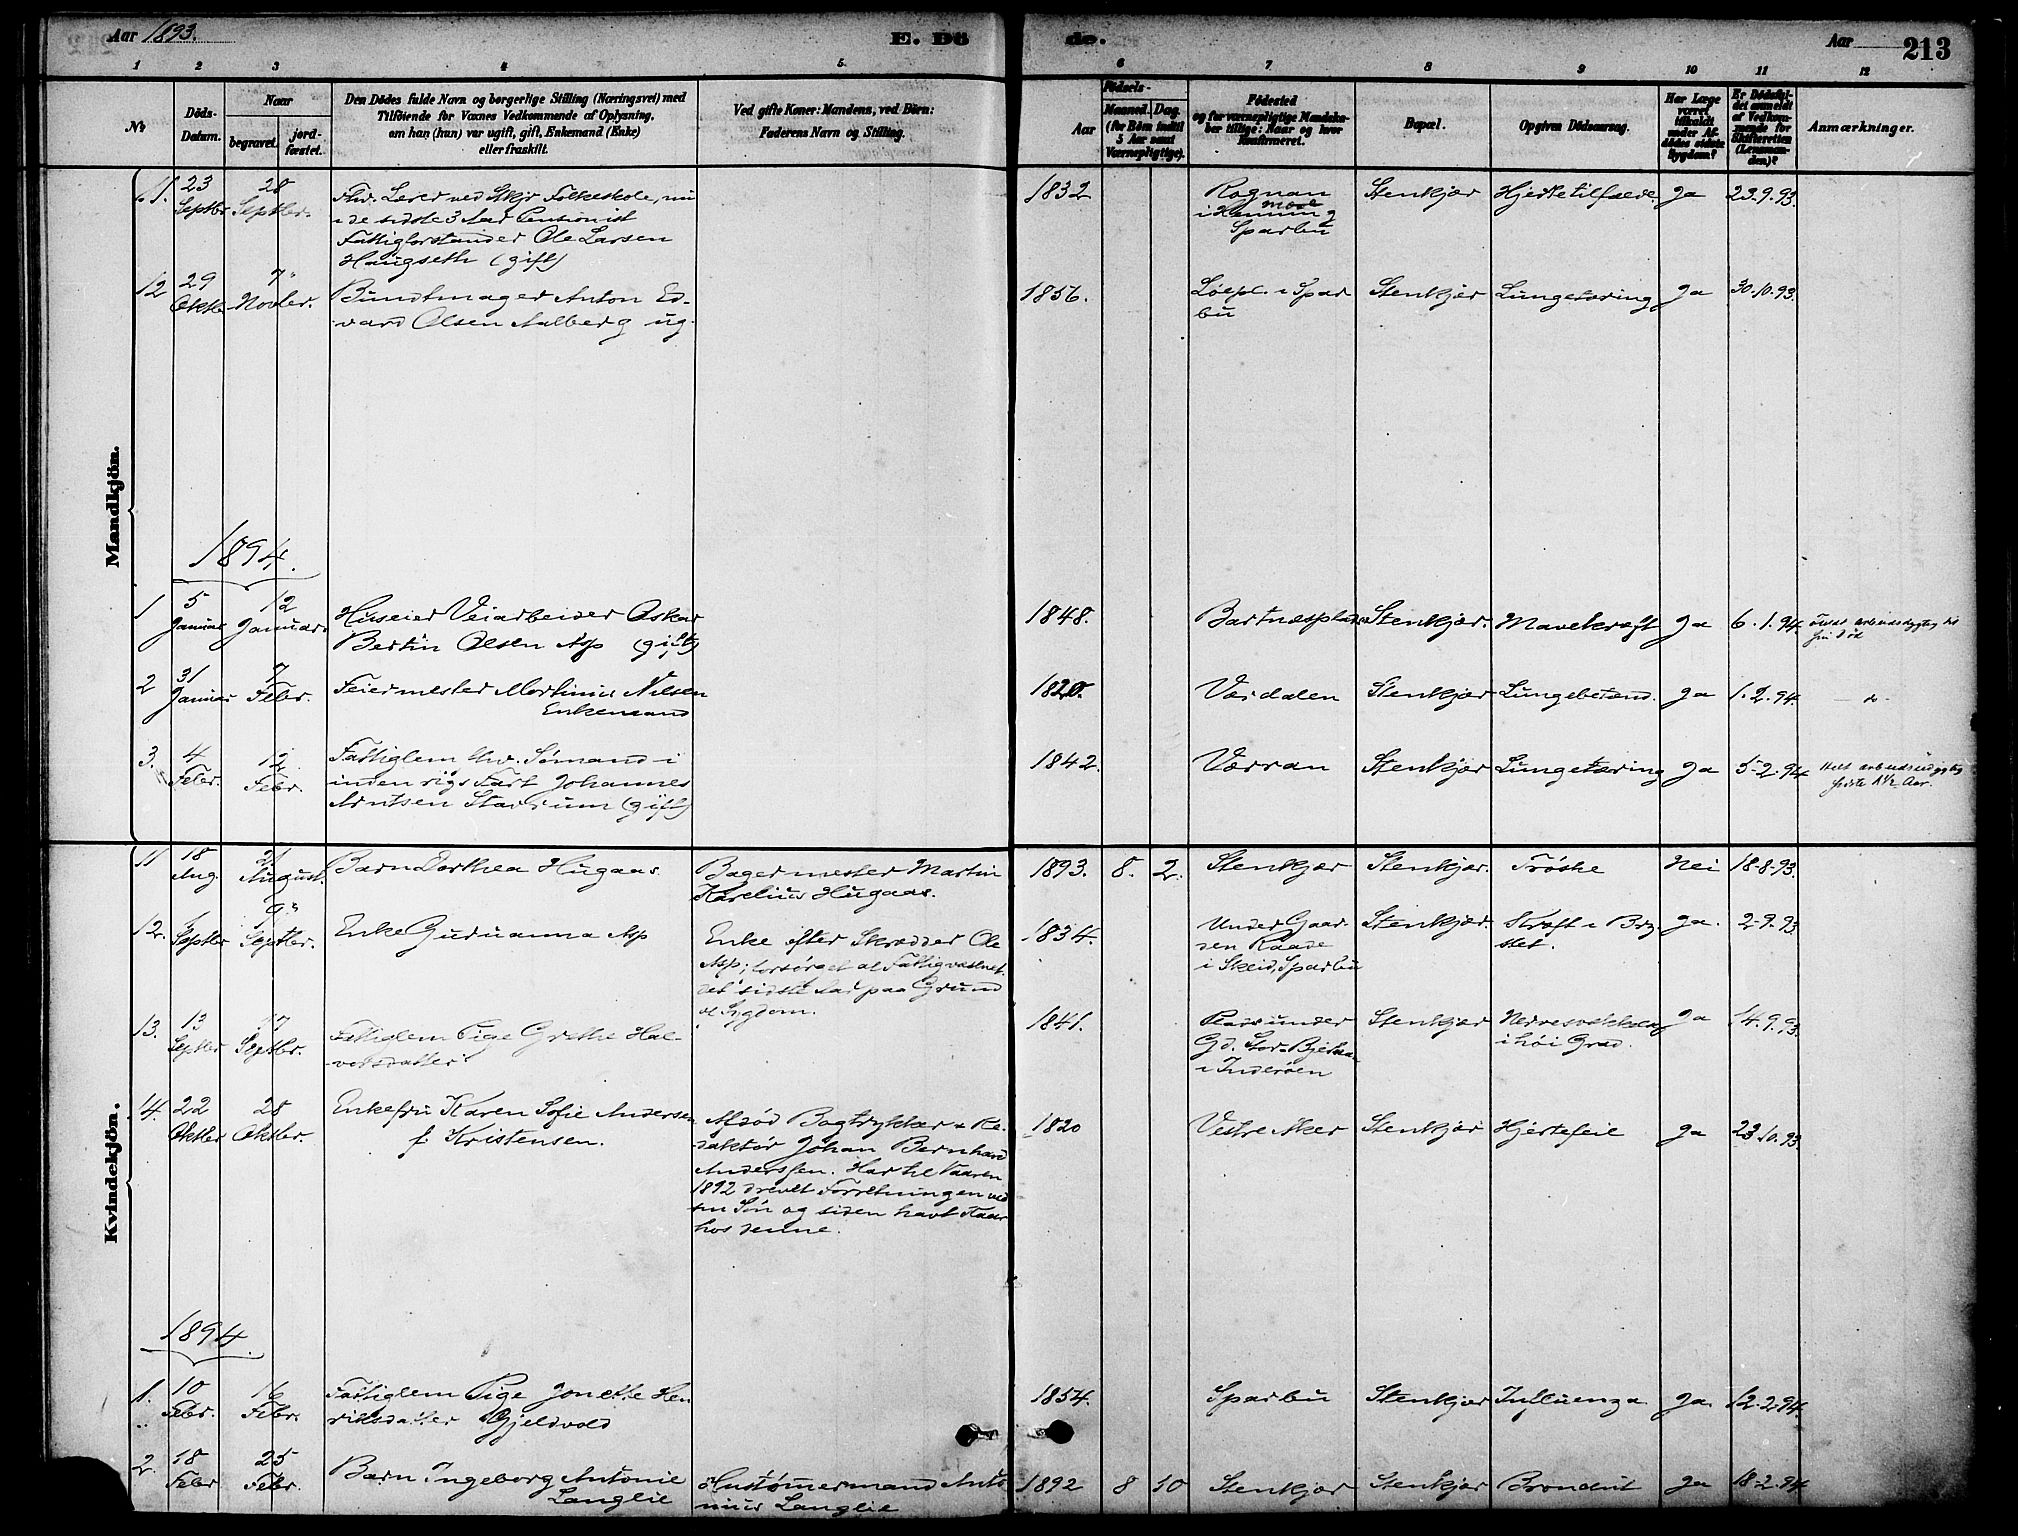 Aar 1893.
E. Dö
de.
Aar
213
1 2 3 4 5 6 7 8 9 10 11 12
No
Döds-
Datum.
Naar
begravet.
jord-
fæstet.
Den Dödes fulde Navn og borgerlige Stilling (Næringsvei) med
Tilföiende for Voxnes Vedkommende af Oplysning,
om han (hun) var ugift, gift, Enkemand (Enke)
eller fraskilt.
Ved gifte Koner: Mandens, ved Börn:
Faderens Navn og Stilling.
Födsels-
Aar
Maaned. Dag.
(for Börn indtil
5 Aar samt
Værnepligtige).
Födested
og for værnepligtige Mandska-
ber tillige: Naar og hvor
Konfirmeret.
Bopæl.
Opgiven Dödsaarsag.
Har Læge
været
tilkaldt
under Af-
dödes sidste
Sygdom?
Er Dödsfal-
det anmeldt
af Vedkom-
mende for
Skifteretten
(Lensman-
den)?
Anmærkninger.
Mandkjön.
11. 23 Septbr 28 Septbr.
Fhv. Lærer ved Stkjr Folkeskole, nu
i de sidste 3 Aar Pensionist
Fattigforstander Ole Larsen
Haugseth (gift)
1832
Rognan
i Henning
Sparbu
Stenkjær
Hjertetilfælde.
Ja
23-9-93.
12 29 Oktbr 7 Novbr.
Bundtmager Anton Ed-
vard Olsen Aalberg ug.
1856.
i Spar
bu
Stenkjær
Lungetæring
Ja
30.10.93.
1894.
1 5 Januar 12 Januar
Huseier Veiarbeider Oskar
Bertin Olsen Asp (gift)
1848.
Bartnæsplads
Stenkjær.
Mavekræft
Ja
6.1.94.
arbeidsdygtig til
sin Død
2 31 Januar 7 Febr.
Feiermester Mortinus Nilsen
Enkemand
1820.
Værdalen
Stenkjær
Lungebetænd.
Ja
1.2.94.
3. 4 Febr. 12 Febr.
Fattiglem fhv. Sømand i
indenrigs Fart Johannes
Arntsen Stavrum (gift)
1842.
Værran
Stenkjær
Lungetæring
Ja
5-2-94
Helt arbeidsudygtig
sidste 1½ Aar.
Kvindekjön.
11 18 Aug. 21 August.
Barn Dorthea Hugaas.
Bagermester Martin
Karelius Hugaas.
1893. 8. 2.
Stenkjær
Stenkjær.
Trøske
Nei
18-8-93.
12. 1 Septbr 9 Septbr.
Enke Guruanna Asp
Enke efter Skrædder Ole
Asp; forsørget af Fattigvæsnet
det sidste Aar paa Grund
af Sygdom.
1834.
Under Gaar-
den Raade
i Skeid, Sparbu
Stenkjær.
Kræft i Bry-
stet.
Ja.
2-9-93
13. 13 Septbr 17 Septbr.
Fattiglem Pige Grethe Hal-
vorsdatter.
1841.
Plads under
Gd. Stor-
i Inderøen
Stenkjær
Nervesvækkelse
i høi Grad.
Ja
14.9.93.
14. 22 Oktbr 28 Oktbr.
Enkefru Karen Sofie Andersen
f. Kristensen.
Afdød Bogtrykker & Re-
daktør Johan Bernhard
Anderssen. Har til Vaaren
1892 drevet Forretningen ved
sin Søn og siden havt Kaar
hos denne.
1820
Vestre Aker
Stenkjær
Hjertefeil
Ja
23.10.93.
1894.
1. 10 Febr. 16 Febr.
Fattiglem Pige Jonette Hen
riksdatter Gjeldvold
1854.
Sparbu
Stenkjær
Influenza
Ja.
12-2-94.
2. 18 Febr 25 Febr.
Barn Ingeborg Antonie
Langlie
Hustømmermand Anto
nius Langlie
1892 8 10
Stenkjær
Stenkjær
Ja
18-2-94